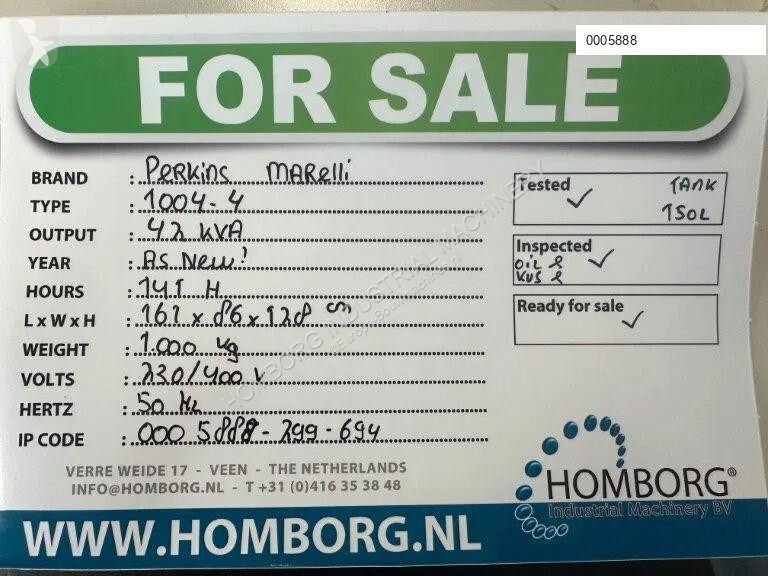 0005888
FOR SALE
BRAND : Perkins MARelli
TYPE : 1004-4
OUTPUT : 42 KVA
YEAR : As New!
HOURS : 141 H
L x W x H : 161 x 86 x 128 cm
WEIGHT : 1.000 kg
VOLTS : 230/400 V
HERTZ : 50 Hz
IP CODE : 000 5888 - 299 - 694
Tested ✓ TANK
Inspected ✓
OIL &
Ready for sale ✓
VERRE WEIDE 17 - VEEN - THE NETHERLANDS
INFO@HOMBORG.NL - T +31 (0)416 35 38 48
HOMBORG®
Industrial Machinery BV
WWW.HOMBORG.NL
HOMBORG INDUSTRIAL MACHINERY